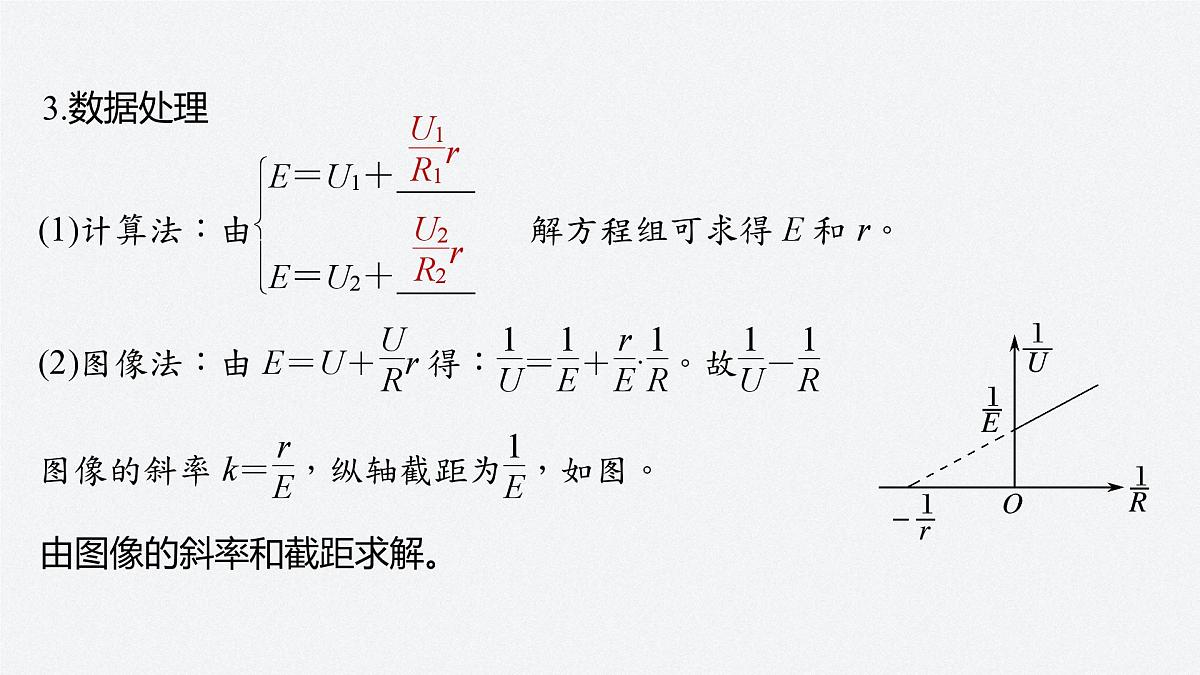 3.数据处理
(1)计算法：由{E=U₁+\frac{U₁}{R₁}r
E=U₂+\frac{U₂}{R₂}r 解方程组可求得 E 和 r。
(2)图像法：由 E=U+\frac{U}{R}r 得：\frac{1}{U}=\frac{1}{E}+\frac{r}{E}·\frac{1}{R}。故\frac{1}{U}-\frac{1}{R}
图像的斜率 k=\frac{r}{E}，纵轴截距为\frac{1}{E}，如图。
由图像的斜率和截距求解。
\frac{1}{U}
\frac{1}{E}
-\frac{1}{r}
O
\frac{1}{R}